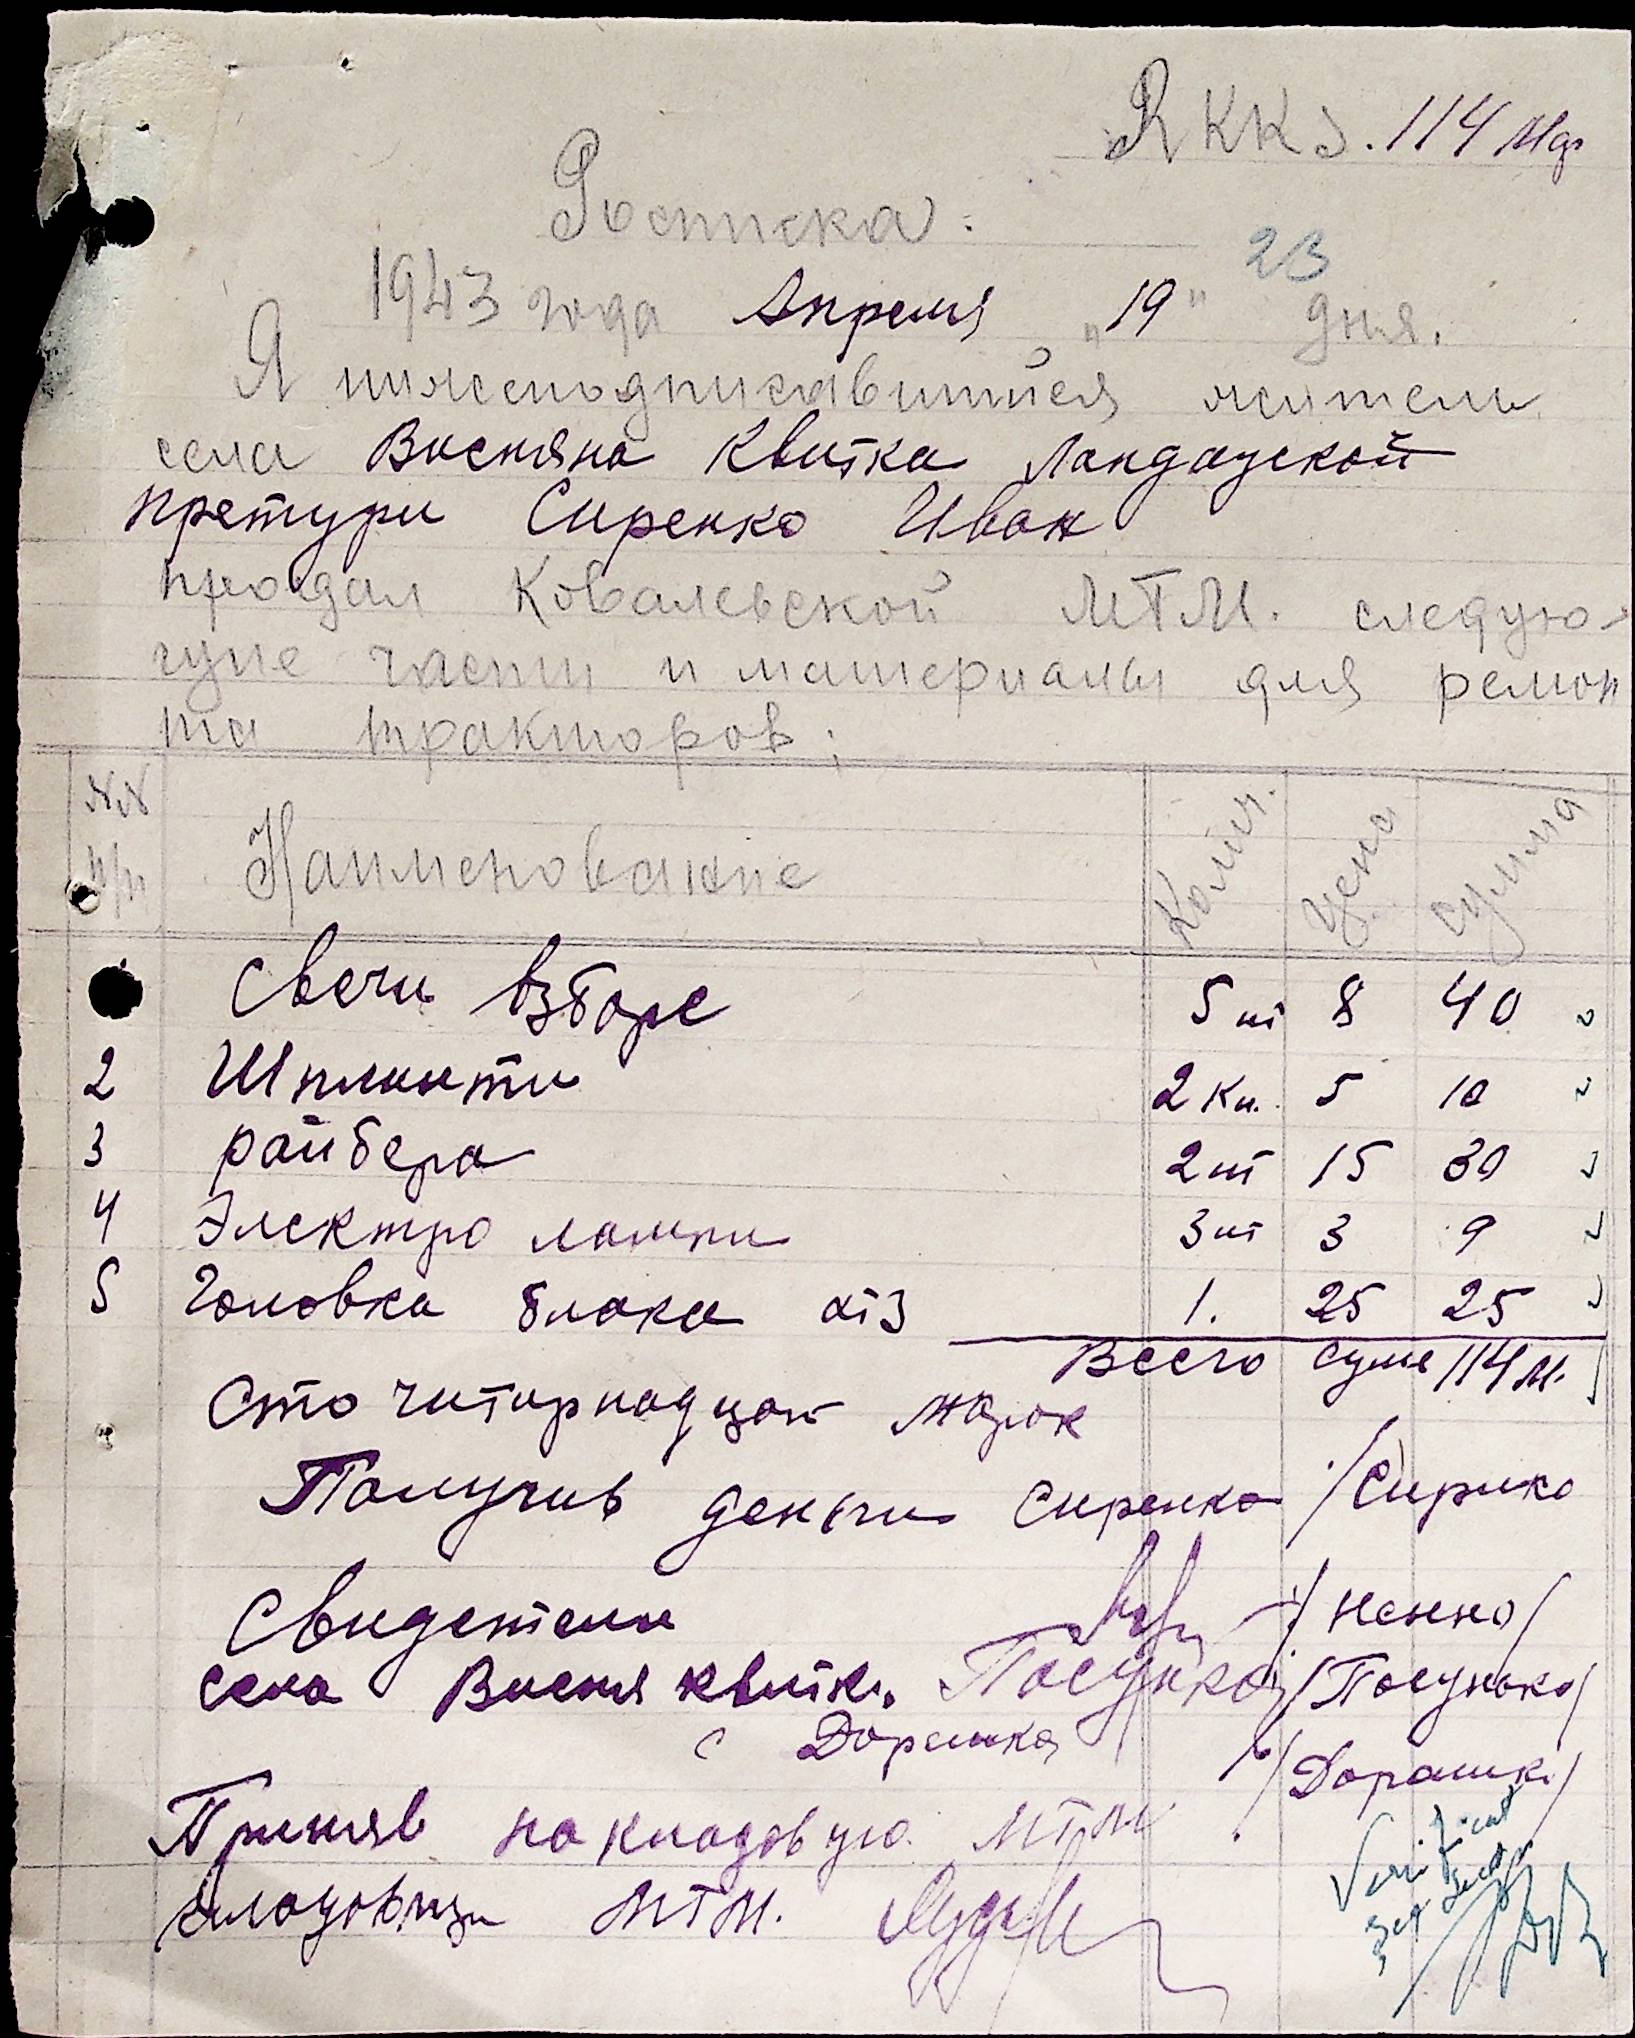 RKKS. 114 Мар
Росписка:
23
1943 года Апреля "19" дня.
Я нижеподписавшийся житель
села Висняна Квитка Ландауской
претури Сиренко Иван
продал Ковалевской МТМ. следую-
щие части и материалы для ремон
та тракторов;
№№ п/п Наименование Колич. Цена Сумма
Свечи взборе 5 шт 8 40
2 Шплинти 2 Кл. 5 10
3 райбера 2 шт 15 30
4 Электро лампи 3 шт 3 9
5 Головка блока хтз 1. 25 25
Всего суме 114 М.
Сто читирнадцат марок
Получив деньги Сиренко /Сиренко
Свидетели /Ненно/
села Висня квитк. Посунько /Посунько/
с Дорошко /Дорошко/
Приняв на кладовую МТМ
кладовщи МТМ.
Verificat